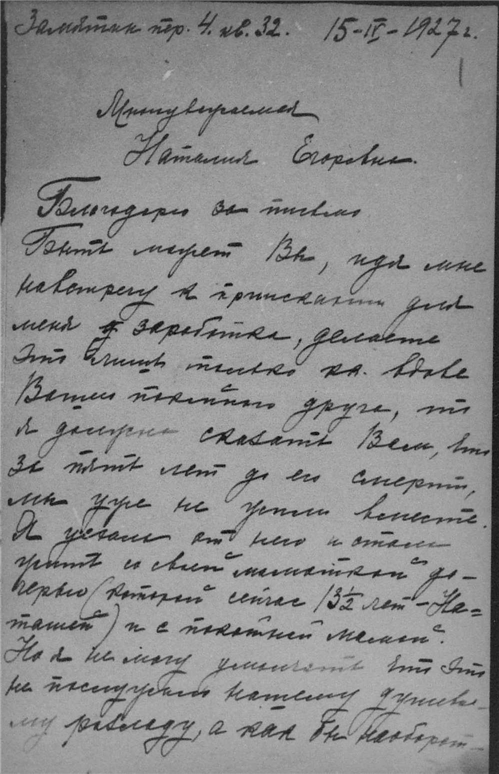 Замятин пер. 4. кв. 32. 15-IV-1927 г.
Многоуважаемая
Наталия Егоровна.
Благодарю за письмо
Быть может Вы, идя мне
навстречу в приискании для
меня заработка, делаете
это лишь только как вдове
Вашего покойного друга, то
я должна сказать Вам, что
за пять лет до его смерти,
мы уже не жили вместе.
Я уехала от него и стала
жить со своей малюткой до-
черью (которой сейчас 13½ лет - На-
ташей) и с покойной мамой.
Но я не могу умолчать что это
не послужило нашему душевно-
му разладу, а как бы наоборот -